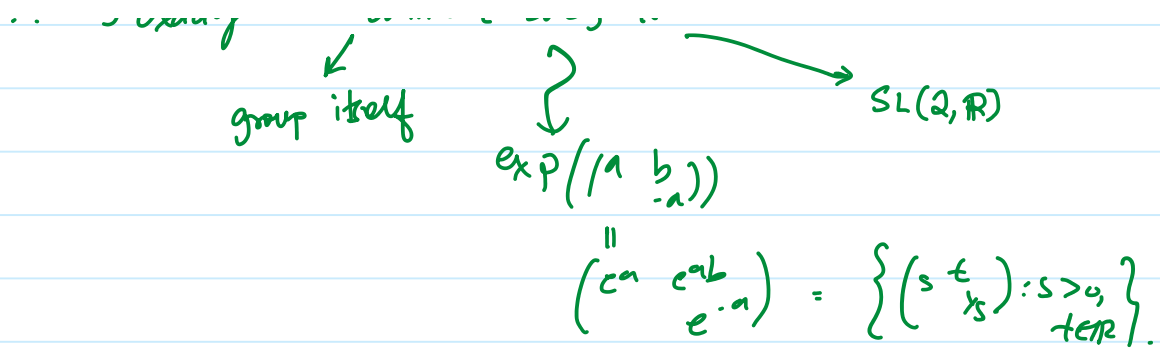 group itself
SL(2, ℝ)
exp((a b
-a))
||
(e^a e^a b
e^-a) = {(s t
1/s) : s > 0,
t ∈ ℝ}.